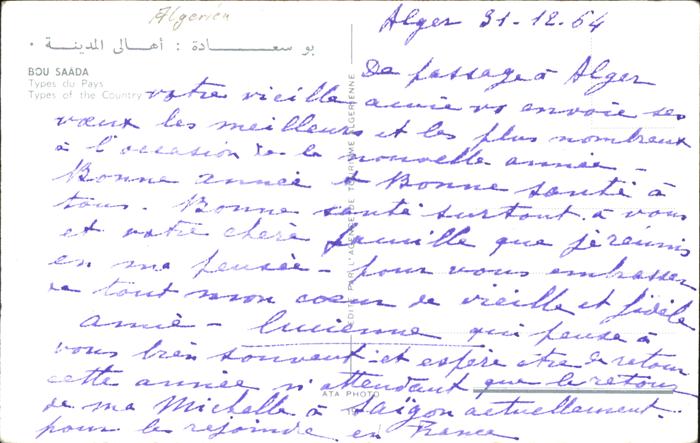 Algerien
Alger 31-12-64
بو سعادة : أهالى المدينة ·
BOU SAÂDA
Types du Pays
Types of the Country
De passage à Alger
votre vieille amie vs envoie ses
vœux les meilleurs et les plus nombreux
à l'occasion de la nouvelle année -
Bonne année et Bonne santé à
tous. Bonne santé surtout à vous
et votre chère famille que je réunis
en ma pensée - pour vous embrasser
de tout mon cœur de vieille et fidèle
amie - Lucienne qui pense à
vous bien souvent et espère être de retour
cette année n'attendant que le retour
de ma Michelle à Saïgon actuellement.
pour la rejoindre en France
PAR L'AGENCE DE TOURISME ALGERIENNE
ATA PHOTO